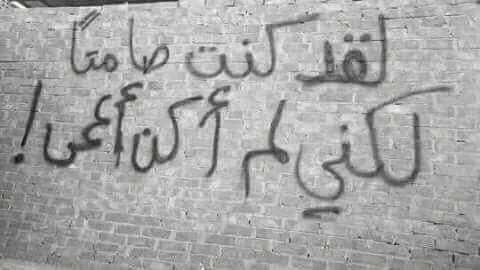 لقد كنت صامتاً
لكني لم أكن أعمى!